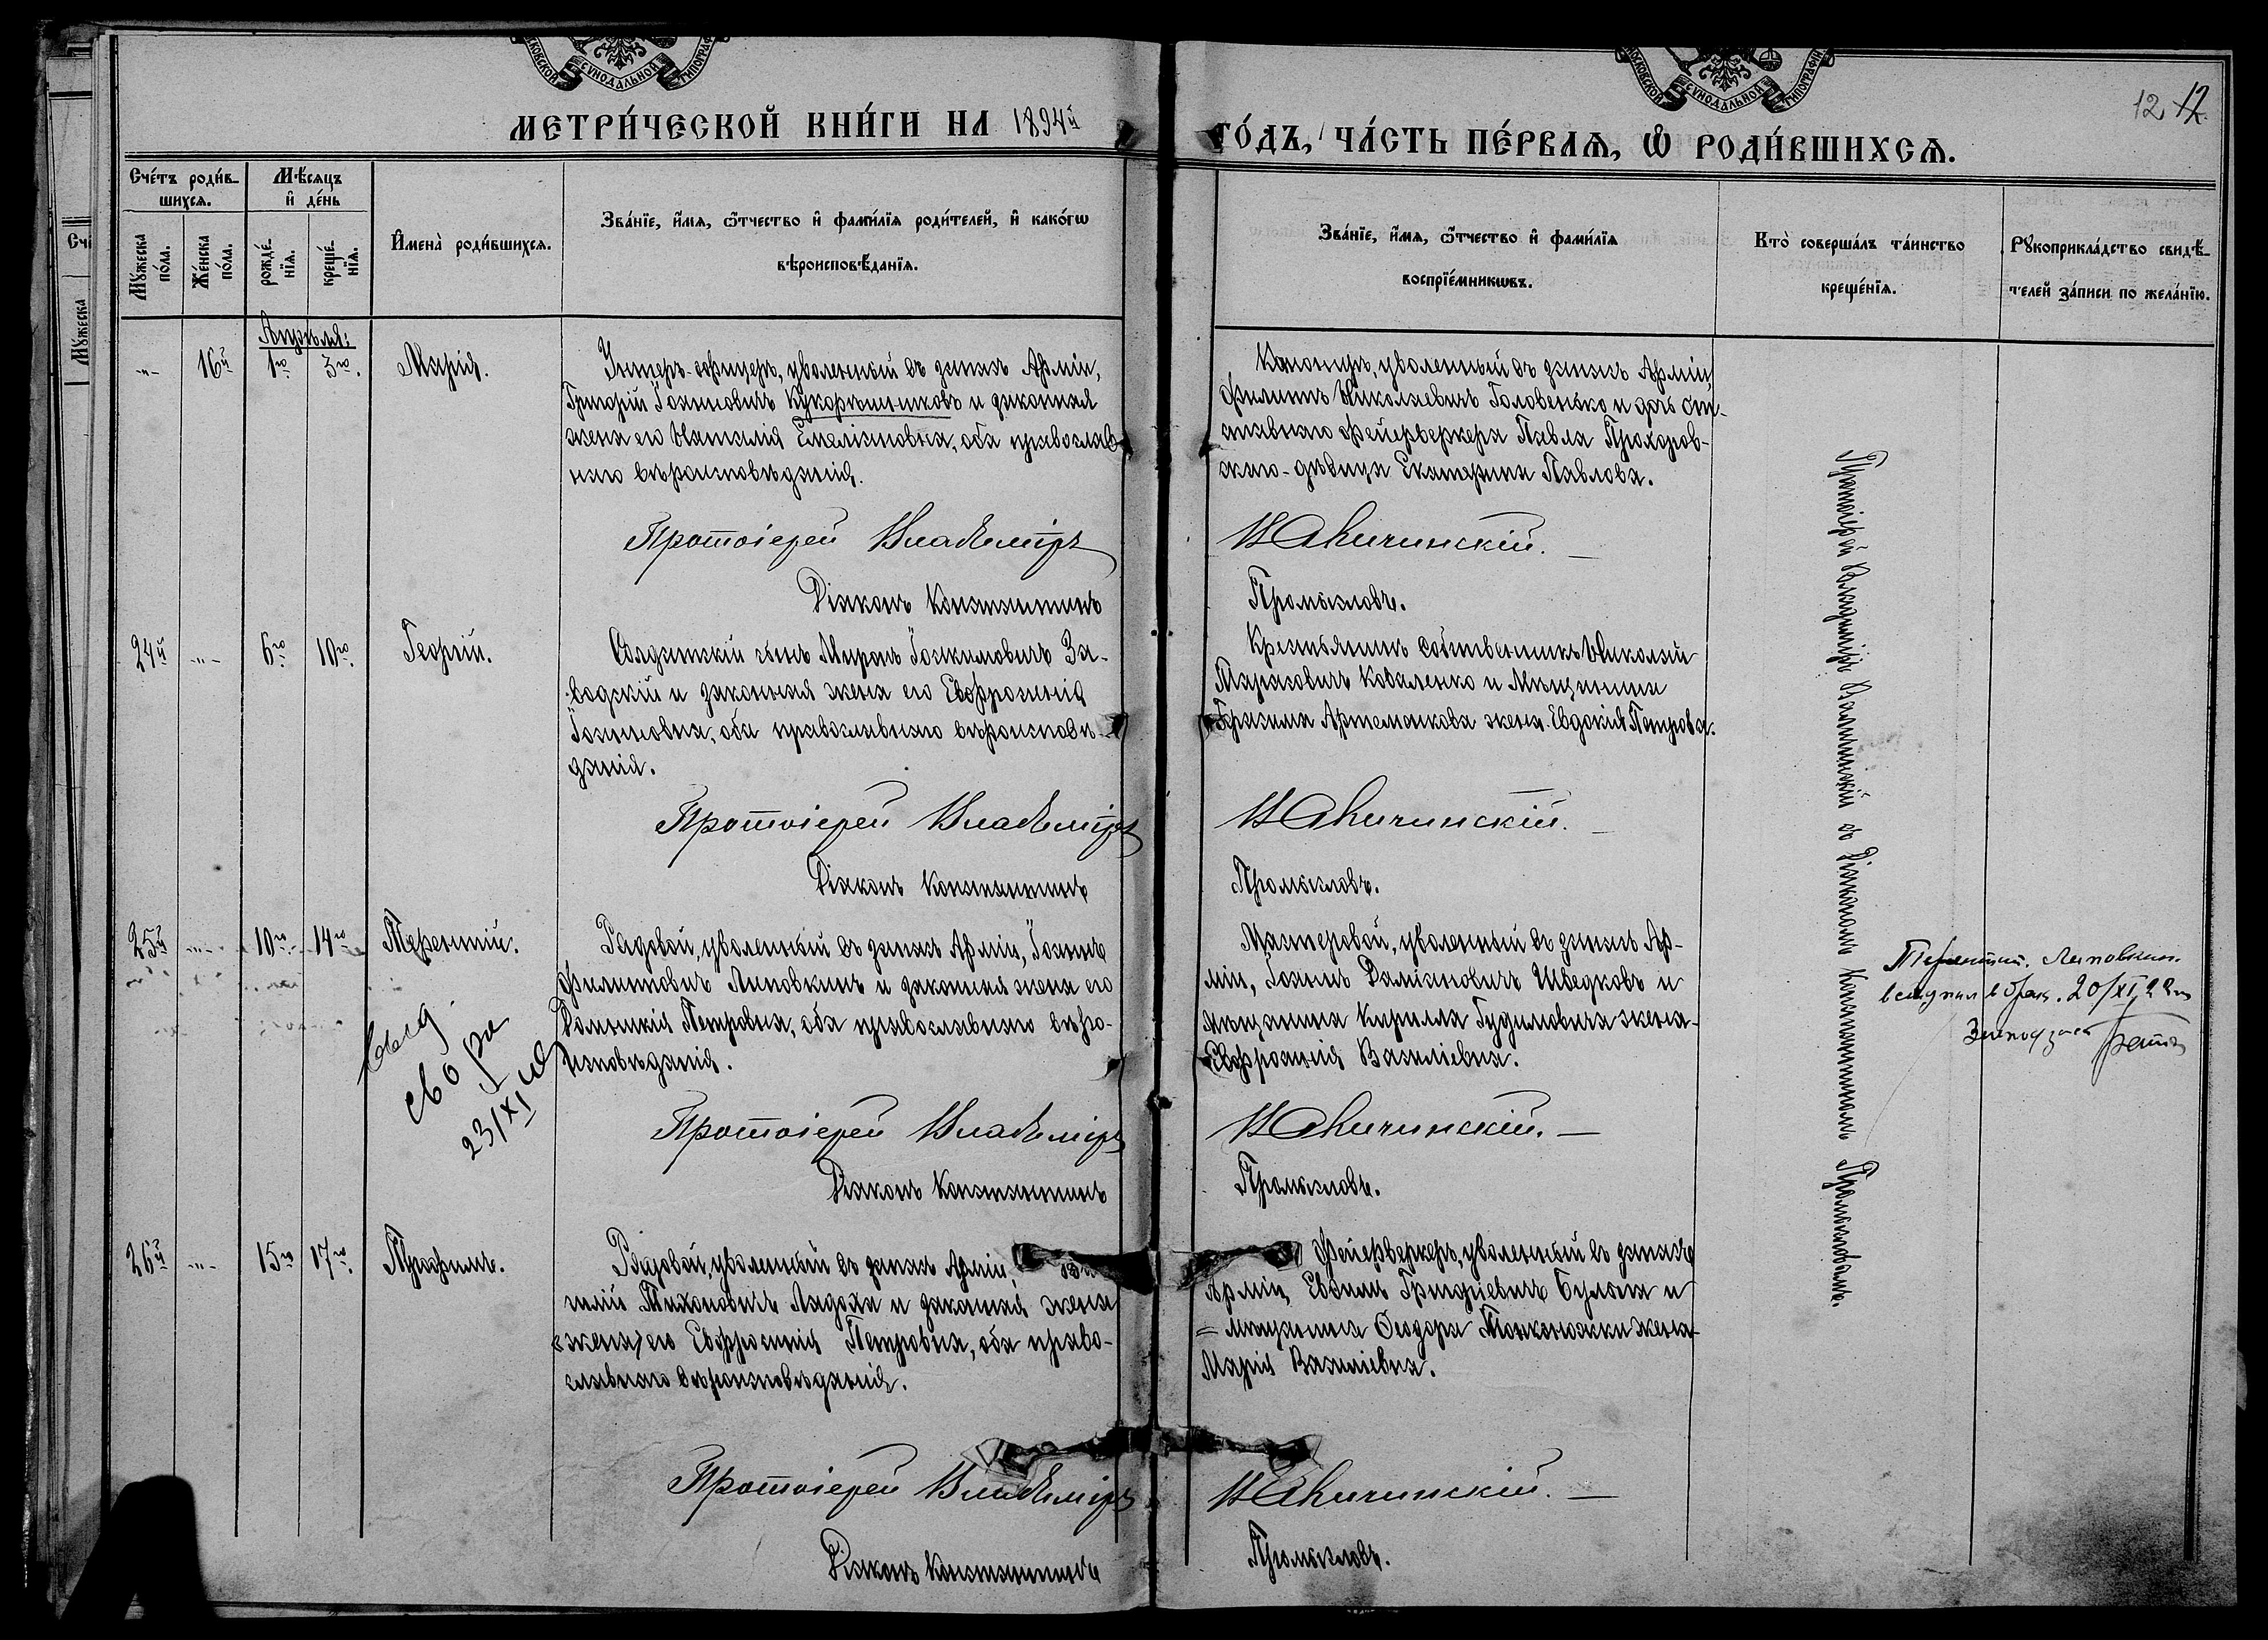 МОСКОВСКОЙ СѴНОДАЛЬНОЙ ТИПОГРАФІИ
МОСКОВСКОЙ СѴНОДАЛЬНОЙ ТИПОГРАФІИ
12 12.
МЕТРИ́ЧЕСКОЙ КНИ́ГИ НА 1894й
ГО́ДЪ, ЧА́СТЬ ПЕ́РВАѦ, Ѡ҆ РОДИ́ВШИХСѦ.
Сче́тъ роди́в-
шихсѧ.
Мꙋ́жеска по́ла.
Же́нска по́ла.
Мѣ́сѧцъ
и҆ де́нь
рожде́нїѧ.
креще́нїѧ.
И҆мена̀ роди́вшихсѧ.
Зва́нїе, и҆́мѧ, ѻ҆́тчество и҆ фами́лїѧ роди́телей, и҆ како́гѡ
вѣроисповѣ́данїѧ.
Зва́нїе, и҆́мѧ, ѻ҆́тчество и҆ фами́лїѧ
воспрїе́мникѡвъ.
Кто̀ соверша́лъ та́инство
креще́нїѧ.
Рꙋкоприкла́дство свидѣ́-
телей за́писи по жела́нїю.
Апрѣля:
-"- 16й 1го 3го. Марія.
Унтеръ-офицеръ, уволенный въ запасъ Арміи,
Григорій Іоанновичъ Кукорѣшниковъ и законная
жена его Наталія Емеліановна, оба православ-
наго вѣроисповѣданія.
Протоіерей Владиміръ
Діаконъ Константинъ
Канониръ, уволенный въ запасъ Арміи,
Филиппъ Николаевичъ Головенько и дочь от-
ставнаго фейерверкера Павла Прохоров-
скаго-дѣвица Екатерина Павлова.
Промысловъ.
24й -"- 6го 10го. Георгій.
Солдатскій сынъ Миронъ Іоакимовичъ За-
водскій и законная жена его Евфросинія
Іоанновна, оба православнаго вѣроисповѣ-
данія.
Протоіерей Владиміръ
Діаконъ Константинъ
Крестьянинъ собственникъ Николай
Тарасовичъ Коваленко и Мѣщанина
Герасима Артеменкова жена Евдокія Петрова.
Промысловъ.
25й -"- 10го 14го Терентій.
Рядовой, уволенный въ запасъ Арміи, Іоаннъ
Филипповичъ Липовкинъ и законная жена его
Домникія Петровна, оба православнаго вѣро-
исповѣданія.
Протоіерей Владиміръ
Діаконъ Константинъ
Мастеровой, уволенный въ запасъ Ар-
міи, Іоаннъ Даміановичъ Шведковъ и
мѣщанина Кирилла Гудимовича жена-
Евфросинія Василіевна.
Промысловъ.
Терентий Липовкин
вступил в брак. 20/XI 22
23/XI
26й -"- 15го 17го. Трофимъ.
Рядовой, уволенный въ запасъ Арміи, Ва-
силій Тихоновичъ Ладоха и законная жена
«жена» его Евфросинія Петровна, оба право-
славнаго вѣроисповѣданія.
Протоіерей Владиміръ
Діаконъ Константинъ
Фейерверкеръ, уволенный въ запасъ
Арміи, Евфимъ Григоріевичъ Булыга и
=Мѣщанина Ѳеодора Тонконожки жена-
Марія Василіевна.
Промысловъ.
Протоіерей Владиміръ
съ Діакономъ Константиномъ Промысловымъ.